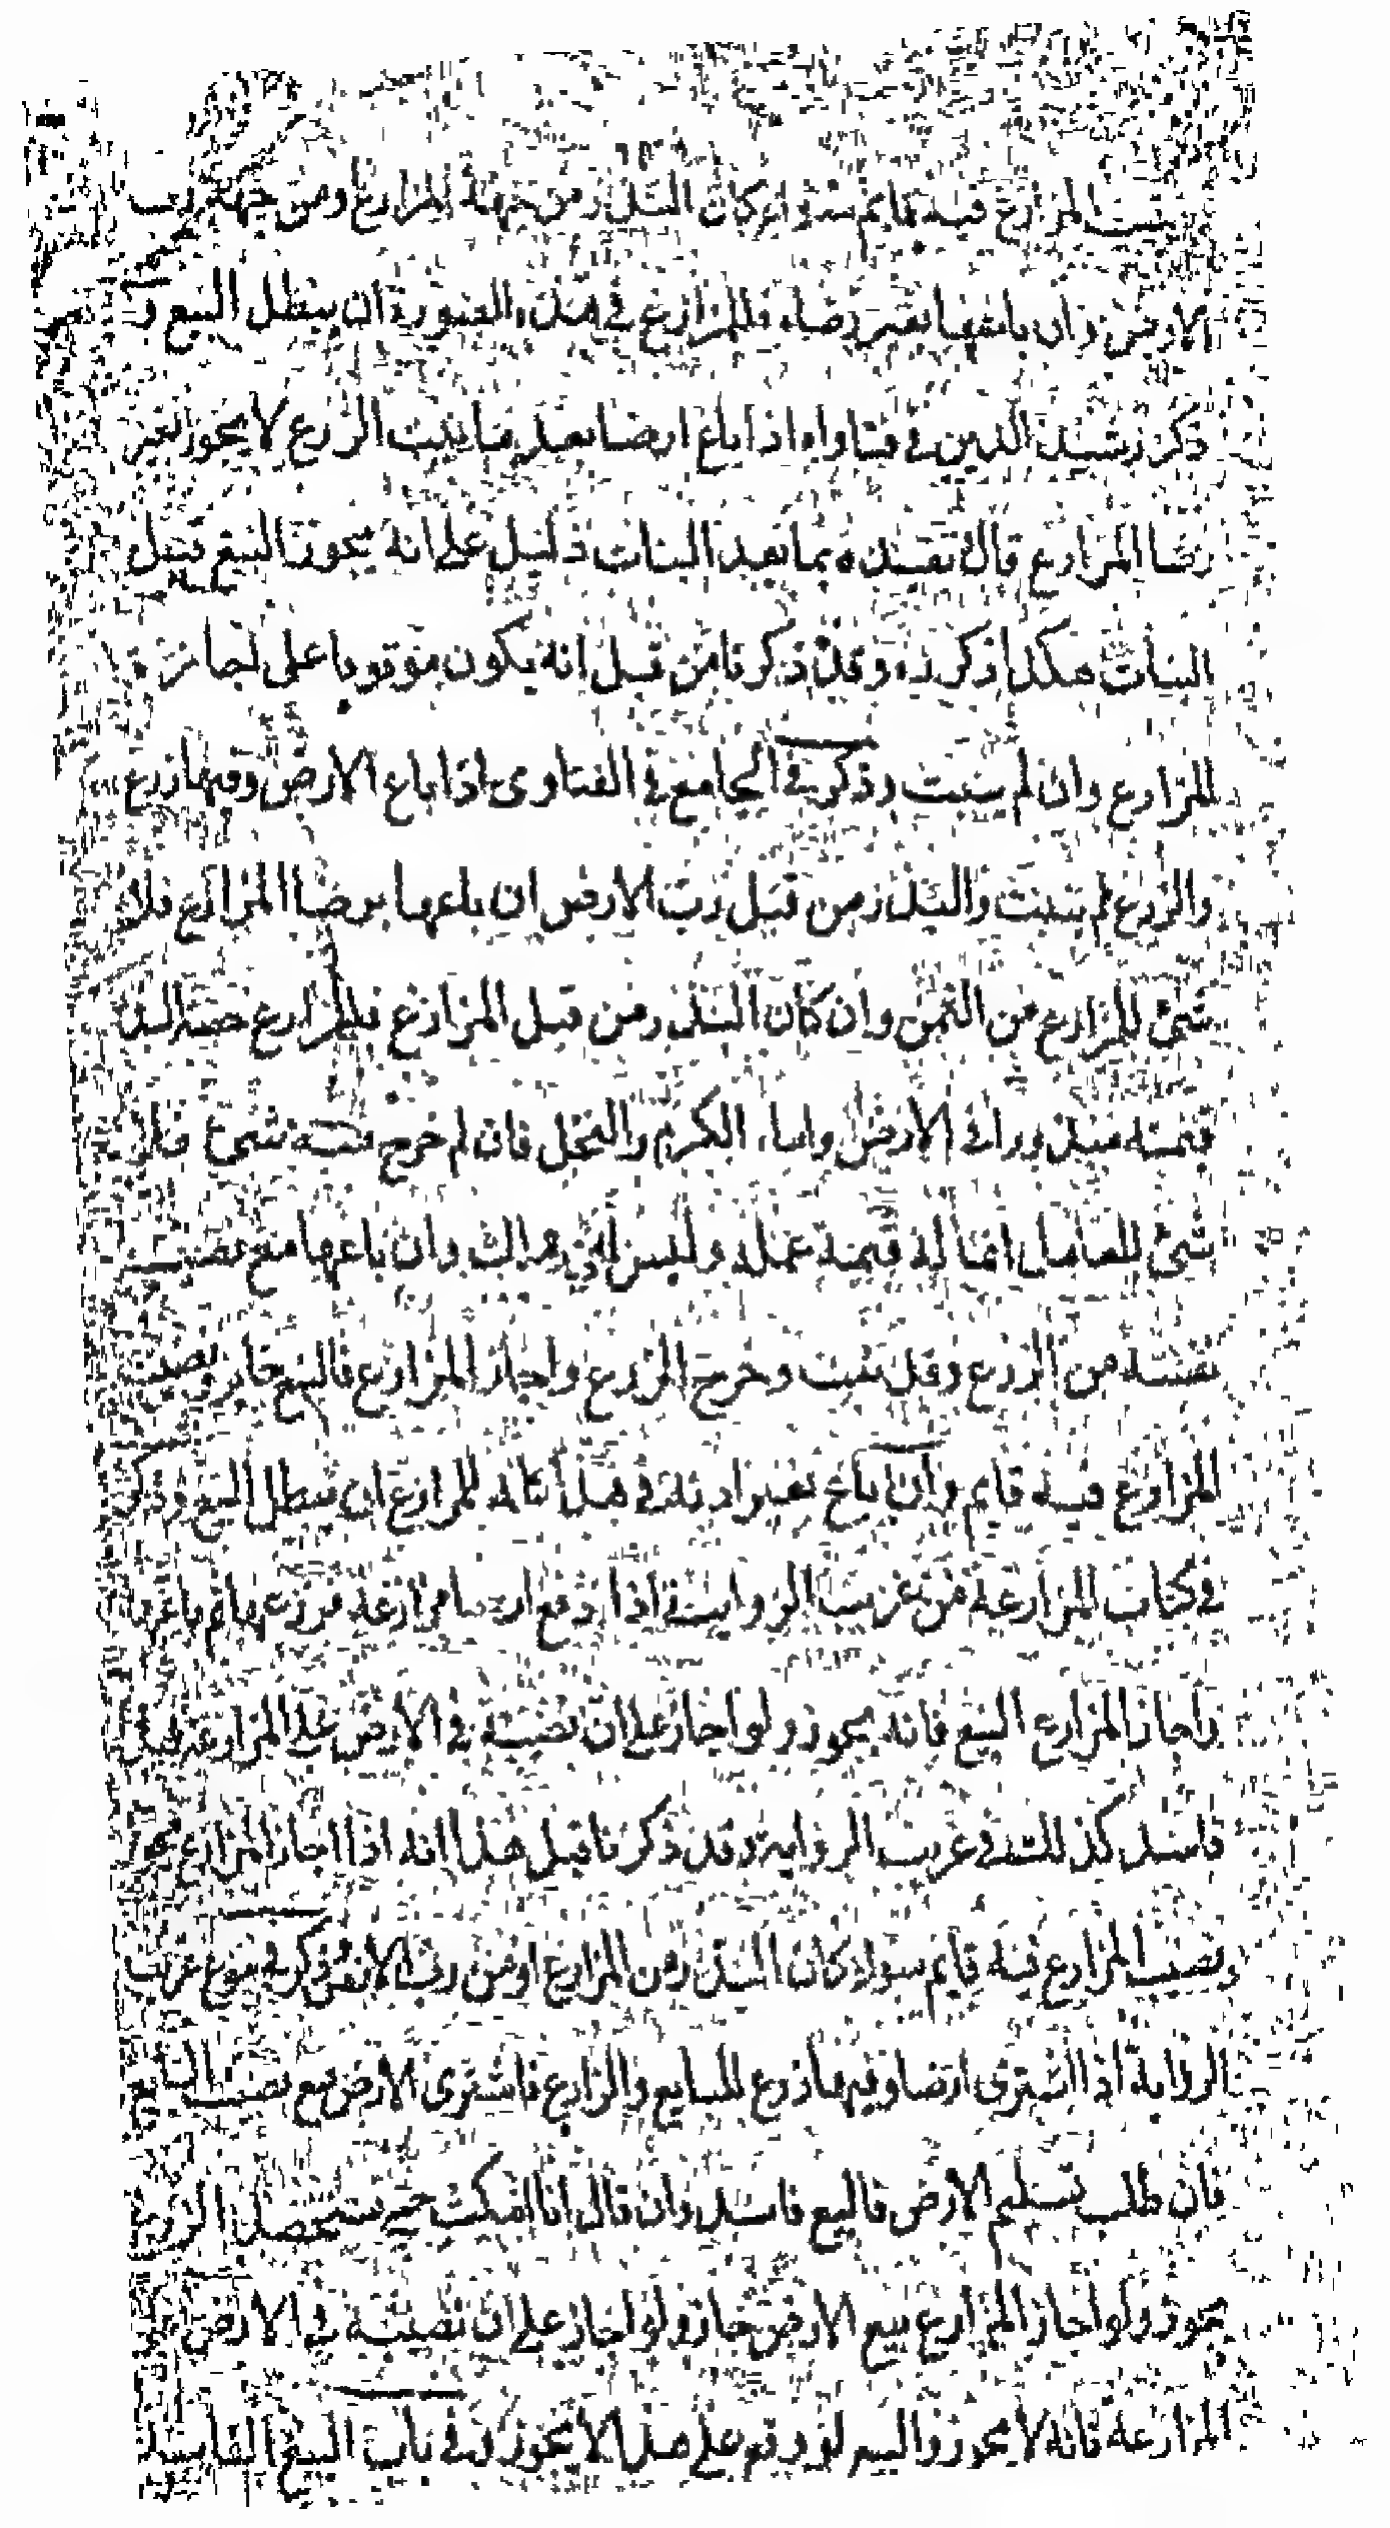 نصيب المزارع فيه قايم سواء كان البذر من جهة المزارع ومن جهة رب
الارض وان باعها بغير رضاه فللمزارع في هذه الصورة ان يبطل البيع و
ذكر رشيد الدين في فتاواه اذا باع ارضا بعد ما ينبت الزرع لا يجوز بغير
رضا المزارع قال تقييده بما بعد النبات دليل على انه يجوز البيع قبل
النبات هكذا ذكره وقد ذكرنا من قبل انه يكون موقوفا على اجازة
المزارع وان لم ينبت وذكر في الجامع في الفتاوى اذا باع الارض وفيها زرع
والزرع لم ينبت والبذر من قبل رب الارض ان باعها برضا المزارع فلا
شئ للمزارع من الثمن وان كان البذر من قبل المزارع فللمزارع حصة البذر
قيمته مبذورا في الارض واما الكرم والنخل فان لم يخرج فيه شئ فلا
شئ للعامل انما له قيمة عمله وليس له ذلك وان باعها مع نصيب
نفسه من الزرع وقد نبت وخرج الزرع واجاز المزارع فالبيع جاز ونصيب
المزارع فيه قايم وان باع بغير اذنه في هذا كله للمزارع ان يبطل البيع وذكر
في كتاب المزارعة من غريب الرواية اذا دفع ارضا مزارعة فزرعها ثم باعها
واجاز المزارع البيع فانه يجوز ولو اجاز على ان نصيبه في الارض على المزارعة
فاسد كذلك في غريب الرواية وقد ذكرنا قبل هذا انه اذا اجاز المزارع
ونصيب المزارع فيه قايم سواء كان البذر من المزارع او من رب الارض وذكر في بيوع غريب
الرواية اذا اشترى ارضا وفيها زرع للبايع والمزارع فاشترى الارض مع نصيب البايع
فان طلب تسليم الارض فالبيع فاسد وان قال انا امكث حتى يستحصد الزرع
يجوز ولو اجاز المزارع بيع الارض جاز ولو اجاز على ان نصيبه في الارض
المزارعة فانه لا يجوز والبيع لو وقع على هذا لا يجوز وفي باب البيع الفاسد